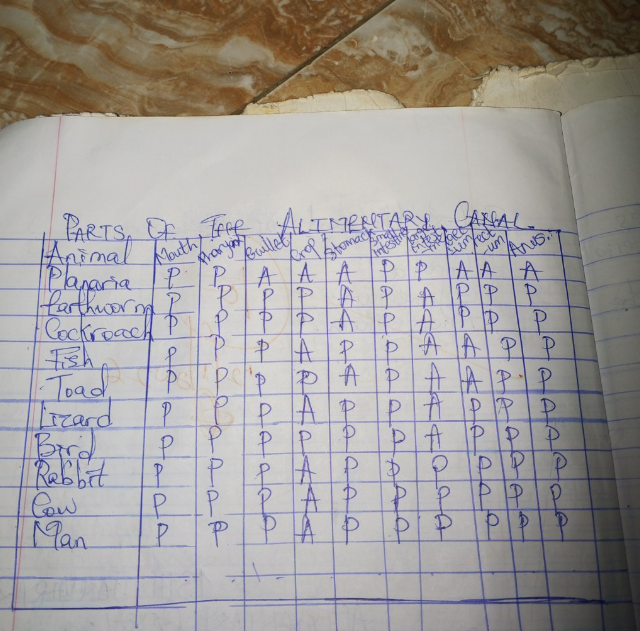 PARTS OF THE ALIMENTARY CANAL
Animal Mouth Pharynx Gullet Crop Stomach Small intestine Large intestine Caecum Rectum Anus
Planaria P P A A A P P A A A
Earthworm P P P P A P A P P P
Cockroach P P P P A P A P P P
Fish P P P A P P A A P P
Toad P P P P A P A A P P
Lizard P P P A P P A P P P
Bird P P P P P P A P P P
Rabbit P P P A P P P P P P
Cow P P P A P P P P P P
Man P P P A P P P P P P